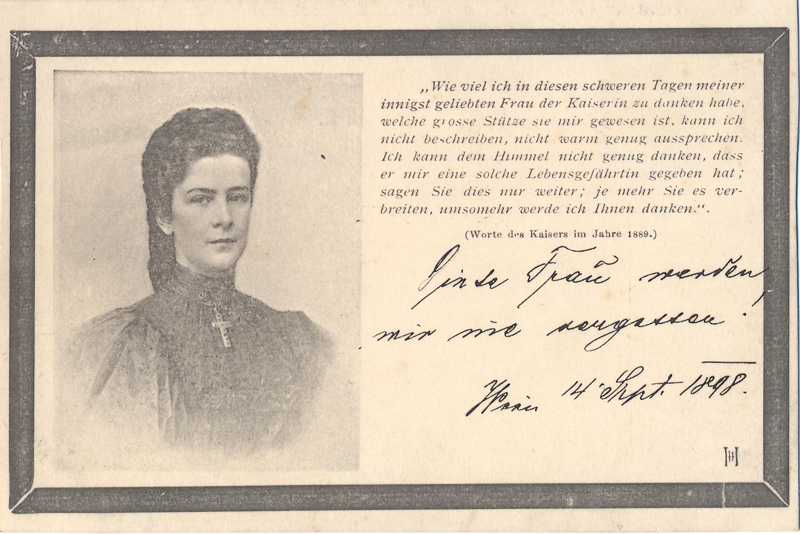 „Wie viel ich in diesen schweren Tagen meiner
innigst geliebten Frau der Kaiserin zu danken habe,
welche grosse Stütze sie mir gewesen ist, kann ich
nicht beschreiben, nicht warm genug aussprechen.
Ich kann dem Himmel nicht genug danken, dass
er mir eine solche Lebensgefährtin gegeben hat;
sagen Sie dies nur weiter; je mehr Sie es ver-
breiten, umsomehr werde ich Ihnen danken.“.
(Worte des Kaisers im Jahre 1889.)
Diese Frau werden
wir nie vergessen!
Wien 14 Sept. 1898.